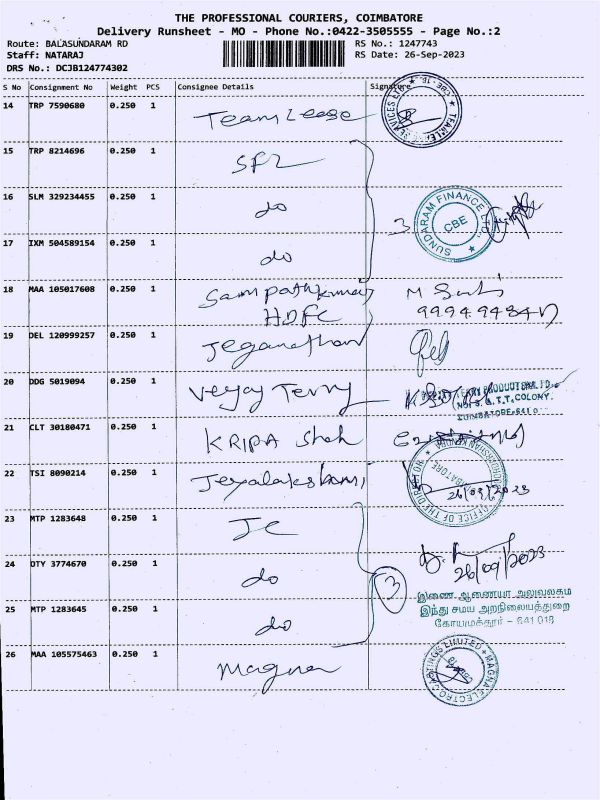 THE PROFESSIONAL COURIERS, COIMBATORE
Delivery Runsheet - MO - Phone No.:0422-3505555 - Page No.:2
Route: BALASUNDARAM RD
RS No.: 1247743
Staff: NATARAJ
RS Date: 26-Sep-2023
DRS No.: DCJB124774302
S No Consignment No Weight PCS Consignee Details Signature
14 TRP 7590680 0.250 1 Team Lease
15 TRP 8214696 0.250 1 SFL
16 SLM 329234455 0.250 1 do
SUNDARAM FINANCE LTD.
CBE
3
17 IXM 504589154 0.250 1 do
18 MAA 105017608 0.250 1 Sampathkumar
HDFC
19 DEL 120999257 0.250 1 Jeganathan
20 DDG 5019094 0.250 1 Vejay Terry
COIMBATORE
21 CLT 30180471 0.250 1 KRIPA Shah
22 TSI 8090214 0.250 1 Jeyalakshmi
OFFICE OF THE DIRECTOR
26/09/2023
23 MTP 1283648 0.250 1 JC
24 DTY 3774670 0.250 1 do
26/09/2023
3
இணை ஆணையர் அலுவலகம்
இந்து சமய அறநிலையத்துறை
கோயமுத்தூர் - 641 018
25 MTP 1283645 0.250 1 do
26 MAA 105575463 0.250 1 Magna
MAGNA ELECTROCASTINGS LIMITED